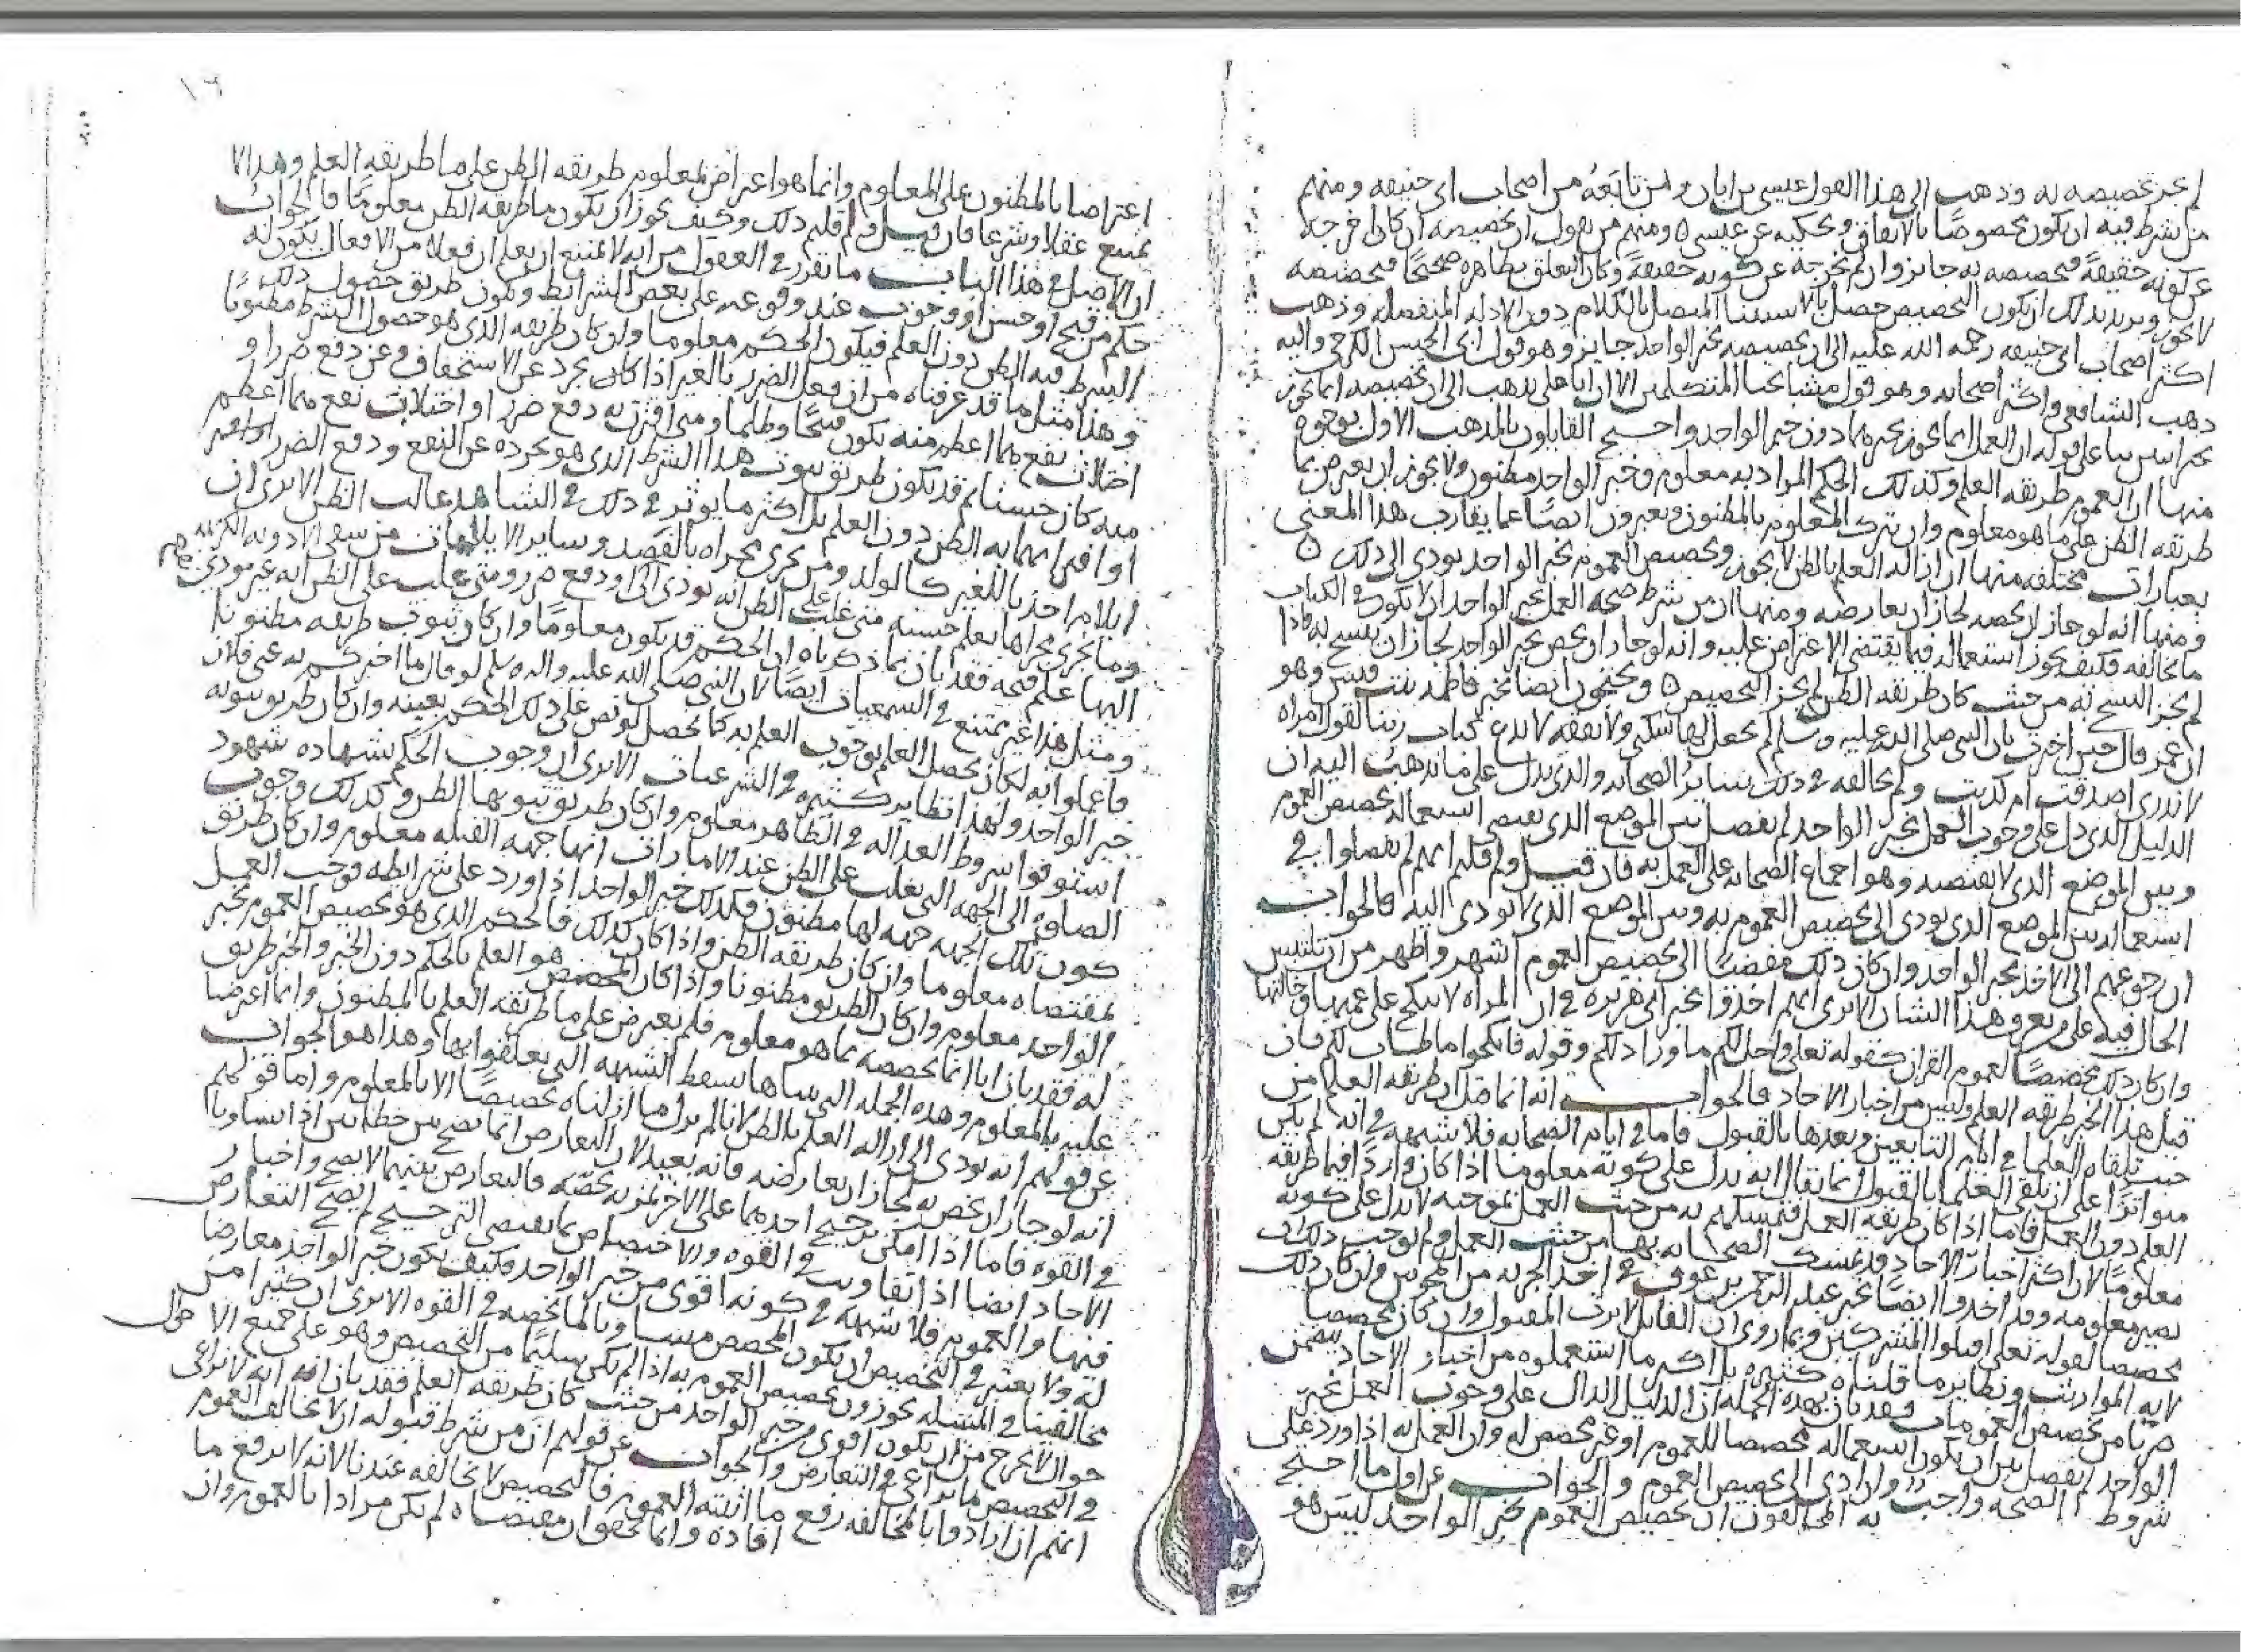 لم يجز تخصيصه به وذهب الى هذا القول عيسى بن ابان ومن تابعه من اصحاب ابى حنيفه ومنهم
من شرط فيه ان يكون مخصوصًا بالاتفاق ويحكيه عن عيسى ومنهم من يقول ان تخصيصه ان كان اخرجه
عن كونه حقيقةً فتخصيصه به جايز وان لم يخرجه عن كونه حقيقةً وكان التعلق بظاهره صحيحًا فتخصيصه
لا يجوز ويريد بذلك ان يكون التخصيص حصل بالاستثنا المتصل بالكلام دون الادله المنفصله وذهب
اكثر اصحاب ابى حنيفه رحمه الله عليه الى ان تخصيصه بخبر الواحد جايز وهو قول ابى الحسن الكرخى واليه
ذهب الشافعى واكثر اصحابه وهو قول مشايخنا المتكلمين الا ان ابا على يذهب الى ان تخصيصه انما يجوز
بخبر اثنين بنا على قوله ان العمل انما يجوز بخبرهما دون خبر الواحد واحتج القايلون بالمذهب الاول بوجوه
منها ان العموم طريقه العلم وكذلك الحكم المراد به معلوم وخبر الواحد مظنون ولا يجوز ان يعترض بما
طريقه الظن على ما هو معلوم وان يترك المعلوم بالمظنون ويعبرون ايضًا عما يقارب هذا المعنى
بعبارات مختلفه منها ان ازاله العلم بالظن لا يجوز وتخصيص العموم بخبر الواحد يودى الى ذلك
ومنها انه لو جاز ان يخصه لجاز ان يعارضه ومنها ان من شرط صحه العمل بخبر الواحد ان لا يكون فى الكتاب
ما يخالفه فكيف يجوز استعماله فيما يقتضى الاعتراض عليه وانه لو جاز ان يخص بخبر الواحد لجاز ان ينسخ به فاذا
لم يجز النسخ به من حيث كان طريقه الظن لم يجز التخصيص ويحتجون ايضا بخبر فاطمه بنت قيس وهو
ان عمر قال حين اخبرت بان النبى صلى الله عليه وسلم لم يجعل لها سكنى ولا نفقه لا ندع كتاب ربنا لقول امراه
لا ندرى اصدقت ام كذبت ولم يخالفه فى ذلك ساير الصحابه والذى يدل على ما نذهب اليه ان
الدليل الذى دل على وجوب العمل بخبر الواحد لم يفصل بين الموضع الذى يقتضى استعماله تخصيص العموم
وبين الموضع الذى لا يقتضيه وهو اجماع الصحابه على العمل به فان قيل ولم قلتم انهم لم يفصلوا فى
استعماله بين الموضع الذى يودى الى تخصيص العموم به وبين الموضع الذى لا يودى اليه فالجواب
ان رجوعهم الى الاخذ بخبر الواحد وان كان ذلك مفضيًا الى تخصيص العموم اشهر واظهر من ان يلتبس
الحال فيه على من يعرف هذا الشان الا ترى انهم اخذوا بخبر ابى هريره فى ان المراه لا تنكح على عمتها وخالتها
وان كان ذلك تخصيصًا لعموم القران كقوله تعلى واحل لكم ما ورا ذلكم وقوله فانكحوا ما طاب لكم فان
قيل هذا الخبر طريقه العلم وليس من اخبار الاحاد فالجواب انه انما قيل ان طريقه العلم من
حيث تلقاه العلما فى ايام التابعين وبعدها بالقبول فاما فى ايام الصحابه فلا شبهه فى انه لم يكن
متواترًا على ان تلقى العلما بالقبول انما يقال انه يدل على كونه معلومًا اذا كان واردًا فيما طريقه
العلم دون العمل فاما اذا كان طريقه العمل فتمسكهم به من حيث العمل بموجبه لا يدل على كونه
معلومًا لان اكثر اخبار الاحاد قد تمسك الصحابه بها من حيث العمل ولم يوجب ذلك ان
تصير معلومه وقد اخذوا ايضًا بخبر عبد الرحمن بن عوف فى اخذ الجزيه من المجوس وان كان ذلك
تخصيصا لقوله تعلى اقتلوا المشركين وبما روى ان القاتل لا يرث المقتول وان كان تخصيصا
لايه المواريث ونظاير ما قلناه كثيره بل اكثر ما استعملوه من اخبار الاحاد يتضمن
ضربا من تخصيص العمومات فقد بان بهذه الجمله ان الدليل الدال على وجوب العمل بخبر
الواحد لم يفصل بين ان يكون استعماله تخصيصا للعموم او غير مخصص له وان العمل به اذا ورد على
شروط الصحه واجبٌ وان ادى الى تخصيص العموم والجواب عن اول ما احتج
به المخالفون ان تخصيص العموم بخبر الواحد ليس هو
١٦
اعتراضا بالمظنون على المعلوم وانما هو اعتراض بمعلوم طريقه الظن على ما طريقه العلم وهذا لا
يمتنع عقلا وشرعا فان قيل ولم قلتم ذلك وكيف يجوز ان يكون ما طريقه الظن معلومًا فالجواب
ان الاصل فى هذا الباب ما تقرر فى العقول من انه لا يمتنع ان يعلم ان فعلا من الافعال يكون له
حكم من قبح او حسن او وجوب عند وقوعه على بعض الشرايط ويكون طريق حصول ذلك
الشرط فيه الظن دون العلم فيكون الحكم معلوما وان كان طريقه الذى هو حصول الشرط مظنونًا
وهذا مثل ما قد عرفناه من ان فعل الضرر بالغير اذا كان يجرد عن الاستحقاق وعن دفع ضرر او
اجتلاب نفع هما اعظم منه يكون قبيحًا وظلما ومتى اقترن به دفع ضرر او اجتلاب نفع هما اعظم
منه كان حسنا ثم قد يكون طريق ثبوت هذا الشرط الذى هو تجرده عن النفع ودفع الضرر
او اقترانهما به الظن دون العلم بل اكثر ما يوثر فى ذلك فى الشاهد غالب الظن الا ترى ان
ايلام احدنا للغير كالولد ومن يجرى مجراه بالفصد وساير الايلامات من سقى الادويه الكريهه
وما يجرى مجراها يعلم حسنه متى غلب على الظن انه يودى الى دفع ضرر ومتى غلب على الظن انه غير مودى
اليها علم قبحه فقد بان بما ذكرناه ان الحكم قد يكون معلومًا وان كان ثبوت طريقه مظنونا
ومثل هذا غير ممتنع فى السمعيات ايضًا لان النبى صلى الله عليه واله وسلم لو قال ما اخبركم به عنى فلان
فاعملوا به لكان يحصل العلم بوجوب العمل به كما يحصل لو نص على ذلك الحكم بعينه وان كان طريق ثبوته
خبر الواحد ولهذا نظاير كثيره فى الشرعيات الا ترى ان وجوب الحكم بشهاده شهود
استوفوا شروط العداله فى الظاهر معلوم وان كان طريق ثبوتها الظن وكذلك وجوب
الصلوه الى الجهه التى يغلب على الظن عند الامارات انها جهه القبله معلوم وان كان طريق
كون تلك الجهه جهه لها مظنون فكذلك خبر الواحد اذا ورد على شرايطه فوجب العمل
بمقتضاه معلوما وان كان طريقه الظن واذا كان كذلك فالحكم الذى هو تخصيص العموم بخبر
الواحد معلوم وان كان الطريق مظنونا واذا كان المخصص هو العلم بالحكم دون الخبر والخبر طريق
له فقد بان انا انما تخصصه بما هو معلوم فلم نعترض على ما طريقه العلم بالمظنون وانما اعترضنا
عليه بالمعلوم وهذه الجمله التى بيناها تسقط الشبهه التى يعلقوا بها وهذا هو الجواب
عن قولهم انه يودى الى ازاله العلم بالظن لانا لم نزل ما ازلناه تخصيصًا الا بالمعلوم واما قولهم
انه لو جاز ان يخص به لجاز ان يعارضه فانه بعيد لان التعارض انما يصح بين خطابين اذا تساويا
فى القوه فاما اذا امكن ترجيح احدهما على الاخر بمزيه تخصه فالتعارض بينهما لا يصح واخبار
الاحاد ايضا اذا تفاوتت فى القوه والاختصاص بما يقتضى الترجيح لم يصح التعارض
فيها والعموم فلا شبهه فى كونه اقوى من خبر الواحد فكيف يكون خبر الواحد معارضا
له ولا يعتبر فى التخصيص ان يكون المخصص مساويا لما تخصه فى القوه الا ترى ان كثيرا من
مخالفينا فى المسئله يجوزون تخصيص العموم به اذا لم يكن سليمًا من التخصيص وهو على جميع الاحوال
لا يخرج من ان يكون اقوى من خبر الواحد من حيث كان طريقه العلم فقد بان انه لا يراعى
فى التخصيص ما يراعى فى التعارض والجواب عن قولهم ان من شرط قبوله ان لا يخالف العموم
انهم ان ارادوا بالمخالفه رفع ما اثبته العموم فالتخصيص لا يخالفه عندنا لانه لا يرفع ما
افاده وانما يحقق ان مقتضاه لم يكن مرادا بالعموم وان